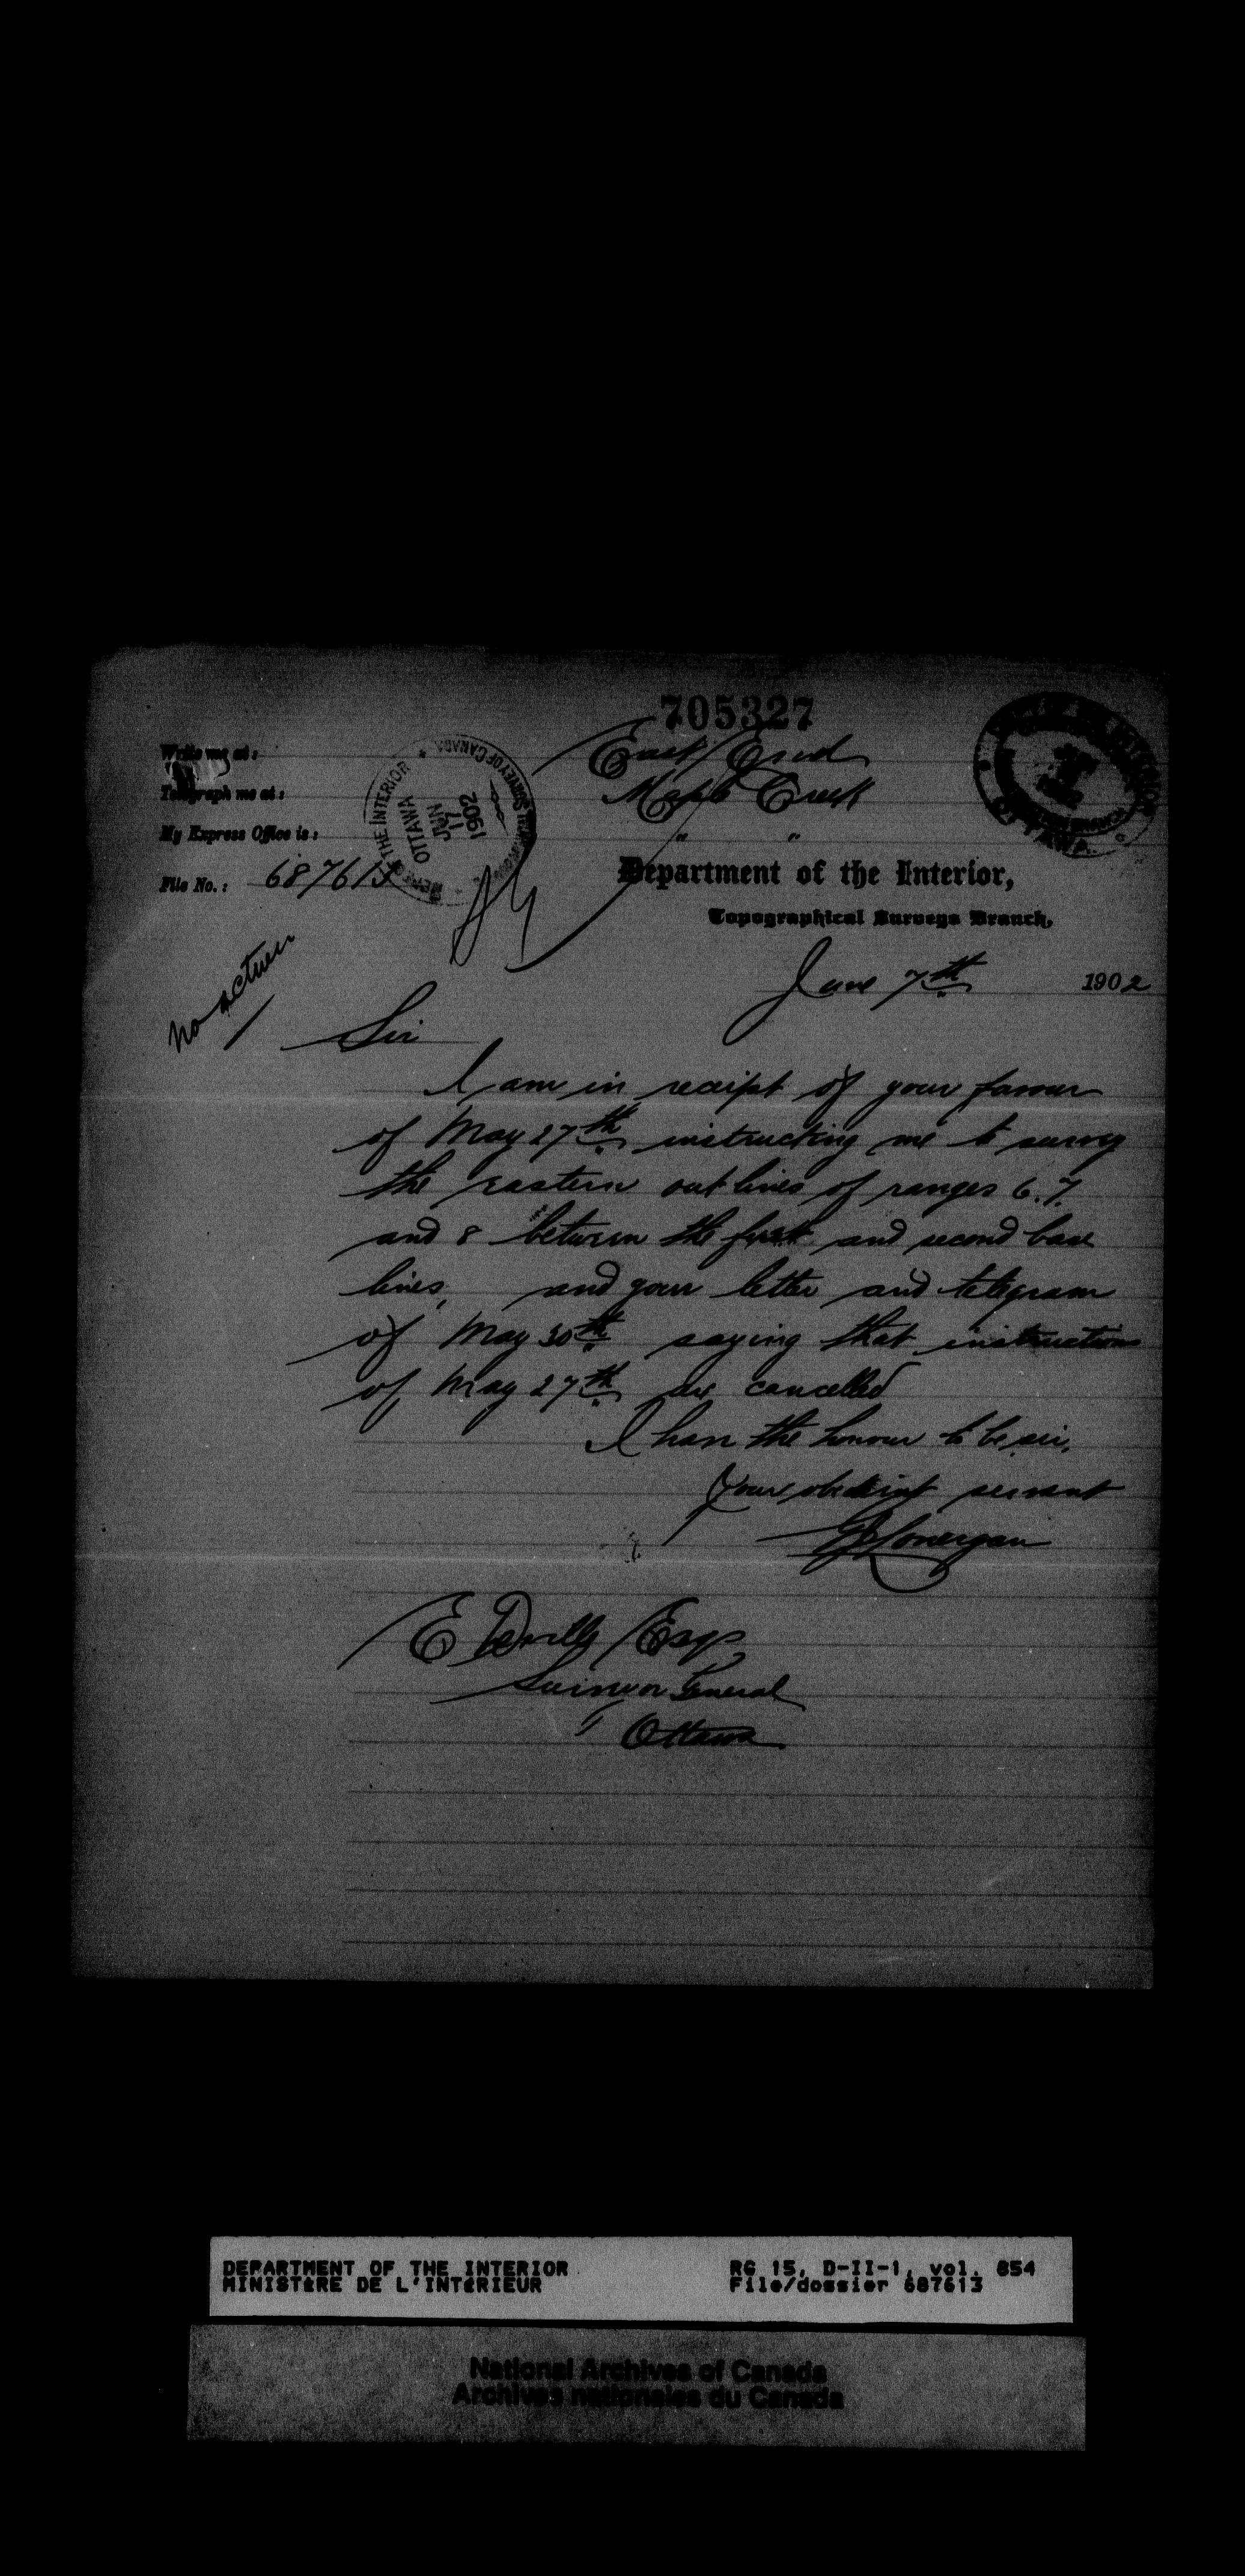 705327
Write me at:
East End
Telegraph me at:
Maple Creek
My Express Office is:
" "
File No.: 687613
DEPT OF THE INTERIOR
SURVEY OF CANADA
OTTAWA
JUN
17
1902
OTTAWA
Department of the Interior,
Topographical Surveys Branch,
June 7th 1902
no action
Sir
I am in receipt of your favour
of May 27th instructing me to survey
the eastern outlines of ranges 6. 7.
and 8 between the first and second base
lines, and your letter and telegram
of May 30th saying that instructions
of May 27th are cancelled
I have the honour to be sir,
Your obedient servant
Lonergan
E Deville Esq
Surveyor General
Ottawa
DEPARTMENT OF THE INTERIOR
MINISTÈRE DE L'INTÉRIEUR
RG 15, D-II-1, vol. 854
File/dossier 687613
National Archives of Canada
Archives nationales du Canada